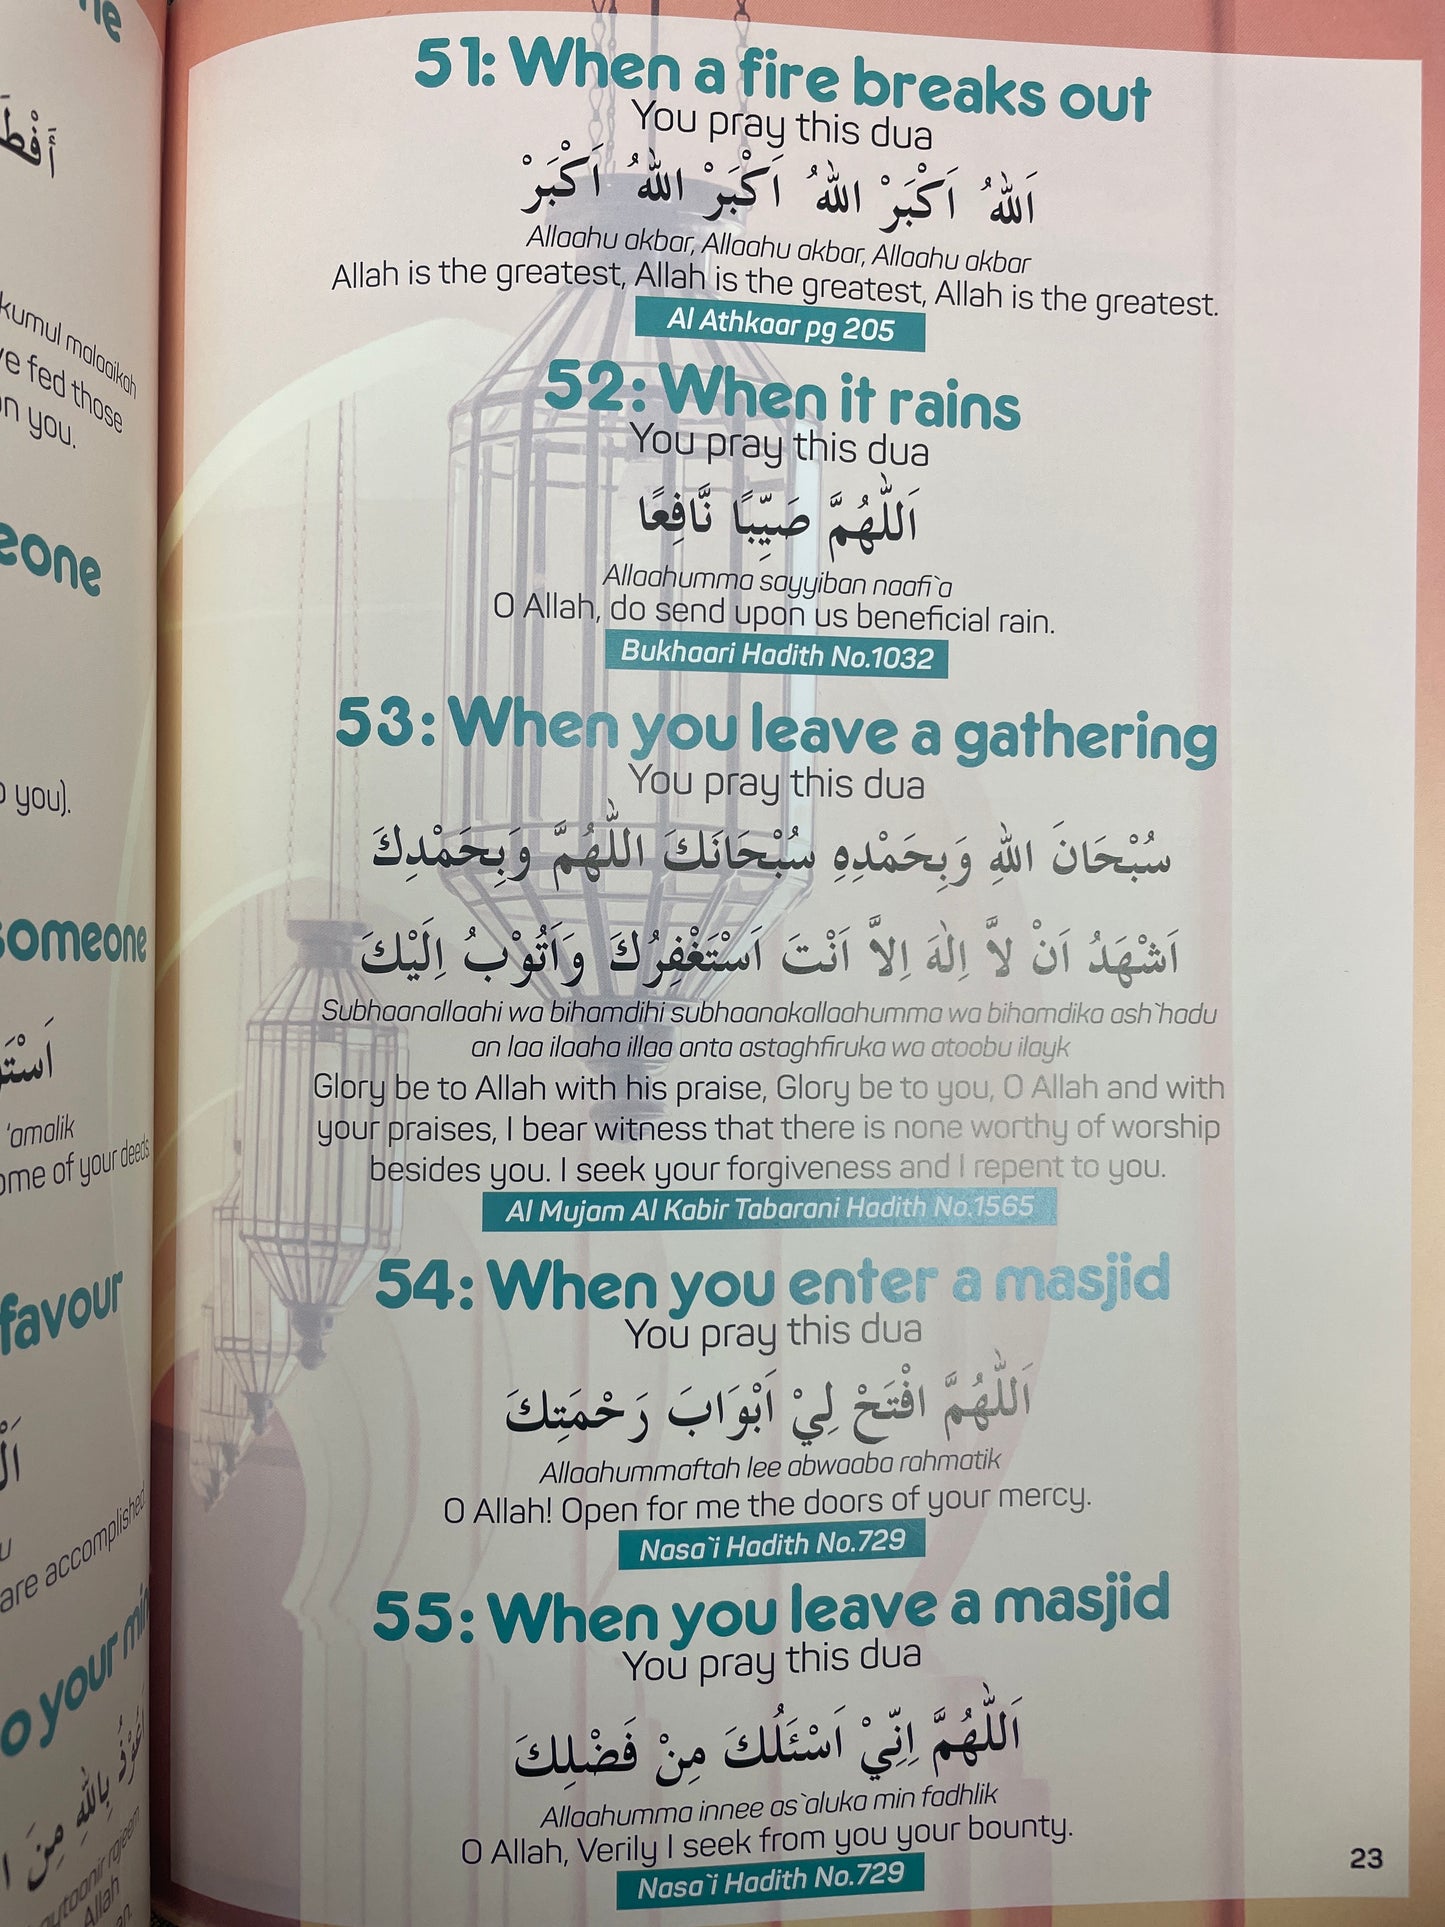 ne
أَفْطَ
kumul malaaikah
ve fed those
on you.
eone
o you).
someone
اَسْتَ
'amalik
ome of your deeds
favour
are accomplished.
o your min
بِاللّٰهِ مِنَ
Allah
51: When a fire breaks out
You pray this dua
اَللّٰهُ اَكْبَرْ اللّٰهُ اَكْبَرْ اللّٰهُ اَكْبَرْ
Allaahu akbar, Allaahu akbar, Allaahu akbar
Allah is the greatest, Allah is the greatest, Allah is the greatest.
Al Athkaar pg 205
52: When it rains
You pray this dua
اَللّٰهُمَّ صَيِّبًا نَّافِعًا
Allaahumma sayyiban naafi`a
O Allah, do send upon us beneficial rain.
Bukhaari Hadith No.1032
53: When you leave a gathering
You pray this dua
سُبْحَانَ اللّٰهِ وَبِحَمْدِهِ سُبْحَانَكَ اللّٰهُمَّ وَبِحَمْدِكَ
اَشْهَدُ اَنْ لاَّ اِلٰهَ اِلاَّ اَنْتَ اَسْتَغْفِرُكَ وَاَتُوْبُ اِلَيْكَ
Subhaanallaahi wa bihamdihi subhaanakallaahumma wa bihamdika ash`hadu
an laa ilaaha illaa anta astaghfiruka wa atoobu ilayk
Glory be to Allah with his praise, Glory be to you, O Allah and with
your praises, I bear witness that there is none worthy of worship
besides you. I seek your forgiveness and I repent to you.
Al Mujam Al Kabir Tabarani Hadith No.1565
54: When you enter a masjid
You pray this dua
اَللّٰهُمَّ افْتَحْ لِيْ اَبْوَابَ رَحْمَتِكَ
Allaahummaftah lee abwaaba rahmatik
O Allah! Open for me the doors of your mercy.
Nasa`i Hadith No.729
55: When you leave a masjid
You pray this dua
اَللّٰهُمَّ اِنِّيْ اَسْئَلُكَ مِنْ فَضْلِكَ
Allaahumma innee as`aluka min fadhlik
O Allah, Verily I seek from you your bounty.
Nasa`i Hadith No.729
23